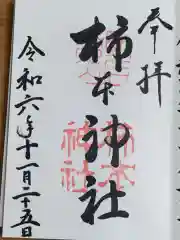 奉拝
柿本神社
令和六年十一月二十五日